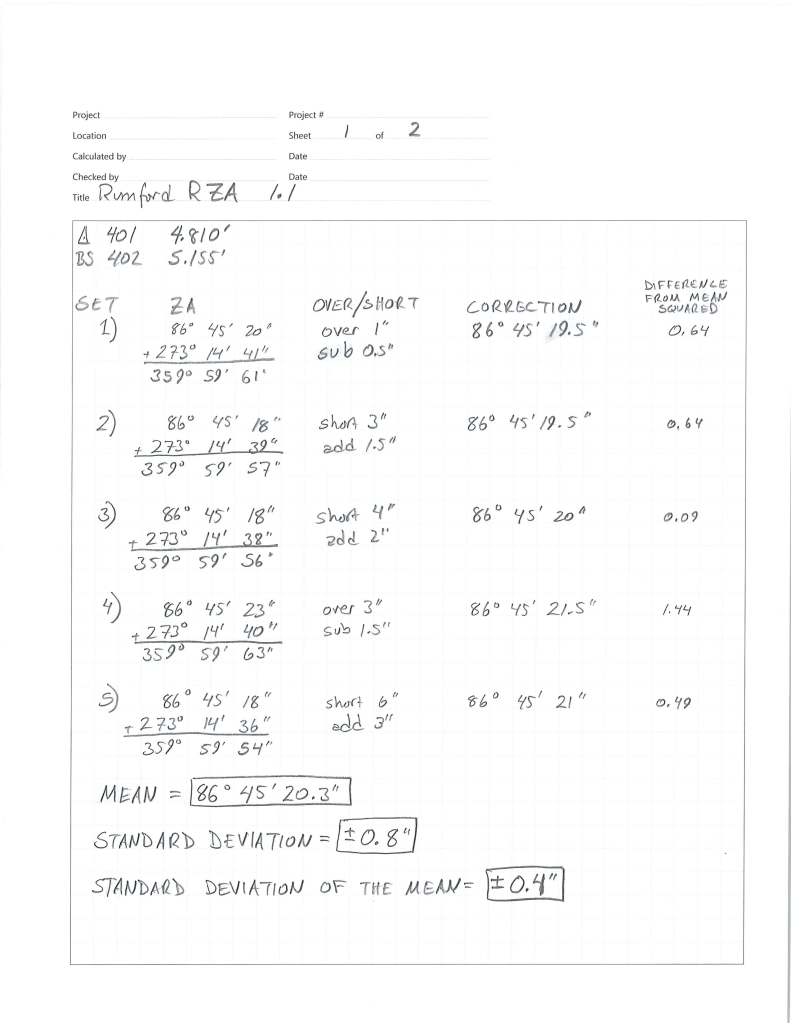 Project Project #
Location Sheet 1 of 2
Calculated by Date
Checked by Date
Title Rumford RZA 1.1
△ 401 4.810'
BS 402 5.155'
SET ZA OVER/SHORT CORRECTION DIFFERENCE FROM MEAN SQUARED
1) 86° 45' 20" over 1" 86° 45' 19.5" 0.64
+ 273° 14' 41" sub 0.5"
359° 59' 61'
2) 86° 45' 18" short 3" 86° 45' 19.5" 0.64
+ 273° 14' 39" add 1.5"
359° 59' 57"
3) 86° 45' 18" short 4" 86° 45' 20" 0.09
+ 273° 14' 38" add 2"
359° 59' 56"
4) 86° 45' 23" over 3" 86° 45' 21.5" 1.44
+ 273° 14' 40" sub 1.5"
359° 59' 63"
5) 86° 45' 18" short 6" 86° 45' 21" 0.49
+ 273° 14' 36" add 3"
359° 59' 54"
MEAN = 86° 45' 20.3"
STANDARD DEVIATION = ±0.8"
STANDARD DEVIATION OF THE MEAN = ±0.4"